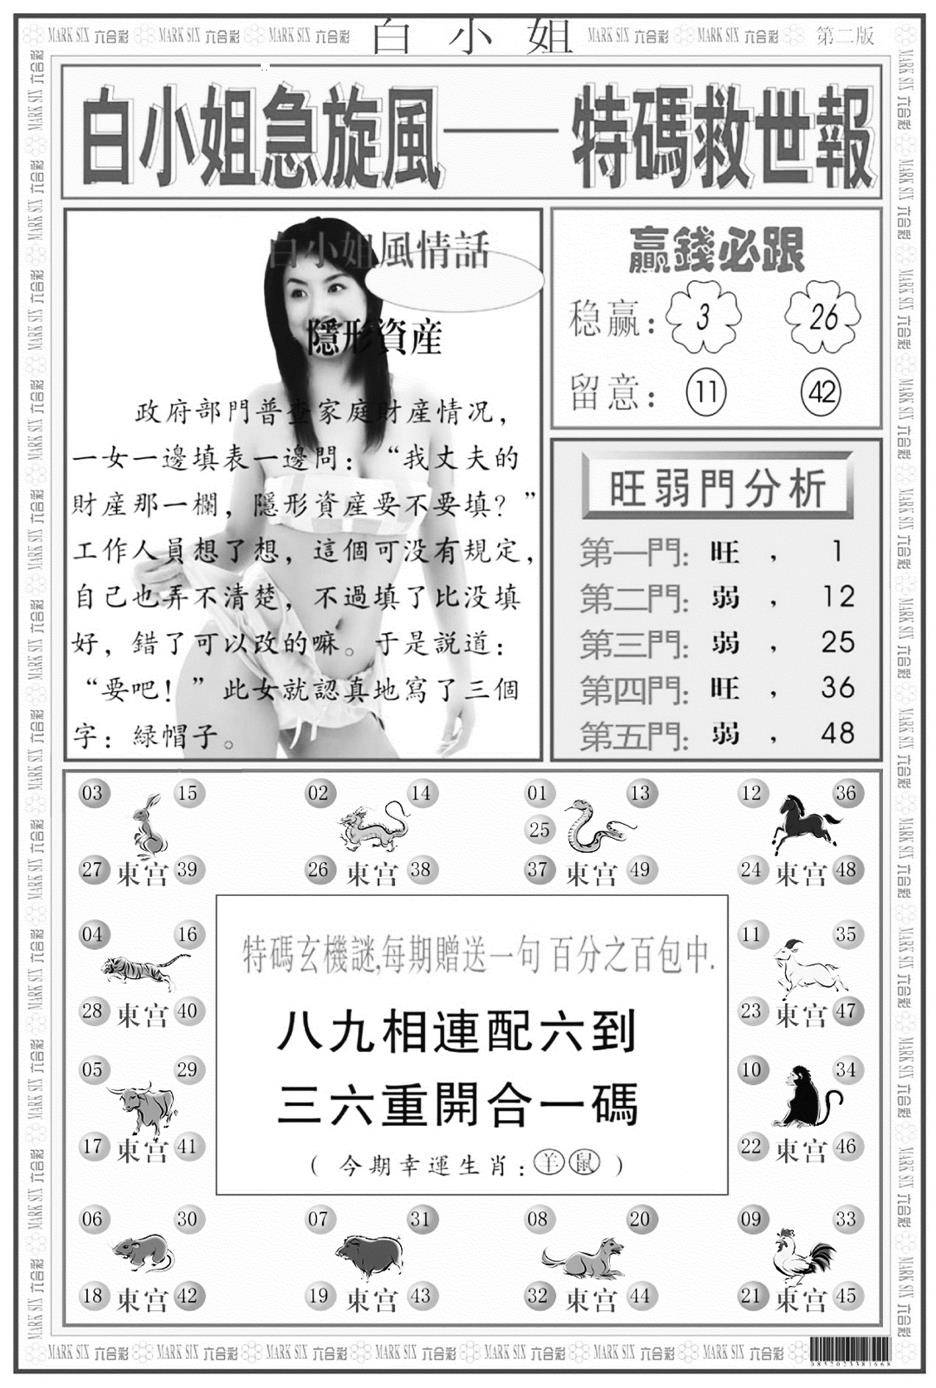 MARK SIX 六合彩 MARK SIX 六合彩 MARK SIX 六合彩 白小姐 MARK SIX 六合彩 MARK SIX 六合彩 第二版
白小姐急旋風——特碼救世報
白小姐風情話
隱形資産
政府部門普查家庭財産情况，
一女一邊填表一邊問：“我丈夫的
財産那一欄，隱形資産要不要填？”
工作人員想了想，這個可没有規定，
自己也弄不清楚，不過填了比没填
好，錯了可以改的嘛。于是説道：
“要吧！”此女就認真地寫了三個
字：緑帽子。
贏錢必跟
稳赢：3 26
留意：11 42
旺弱門分析
第一門：旺，1
第二門：弱，12
第三門：弱，25
第四門：旺，36
第五門：弱，48
03 15
27 東宫 39
02 14
26 東宫 38
01 13
25
37 東宫 49
12 36
24 東宫 48
04 16
28 東宫 40
11 35
23 東宫 47
05 29
17 東宫 41
10 34
22 東宫 46
特碼玄機謎,每期贈送一句 百分之百包中.
八九相連配六到
三六重開合一碼
（今期幸運生肖：羊鼠）
06 30
18 東宫 42
07 31
19 東宫 43
08 20
32 東宫 44
09 33
21 東宫 45
MARK SIX 六合彩 MARK SIX 六合彩 MARK SIX 六合彩 MARK SIX 六合彩 MARK SIX 六合彩 MARK SIX 六合彩 MARK SIX 六合彩